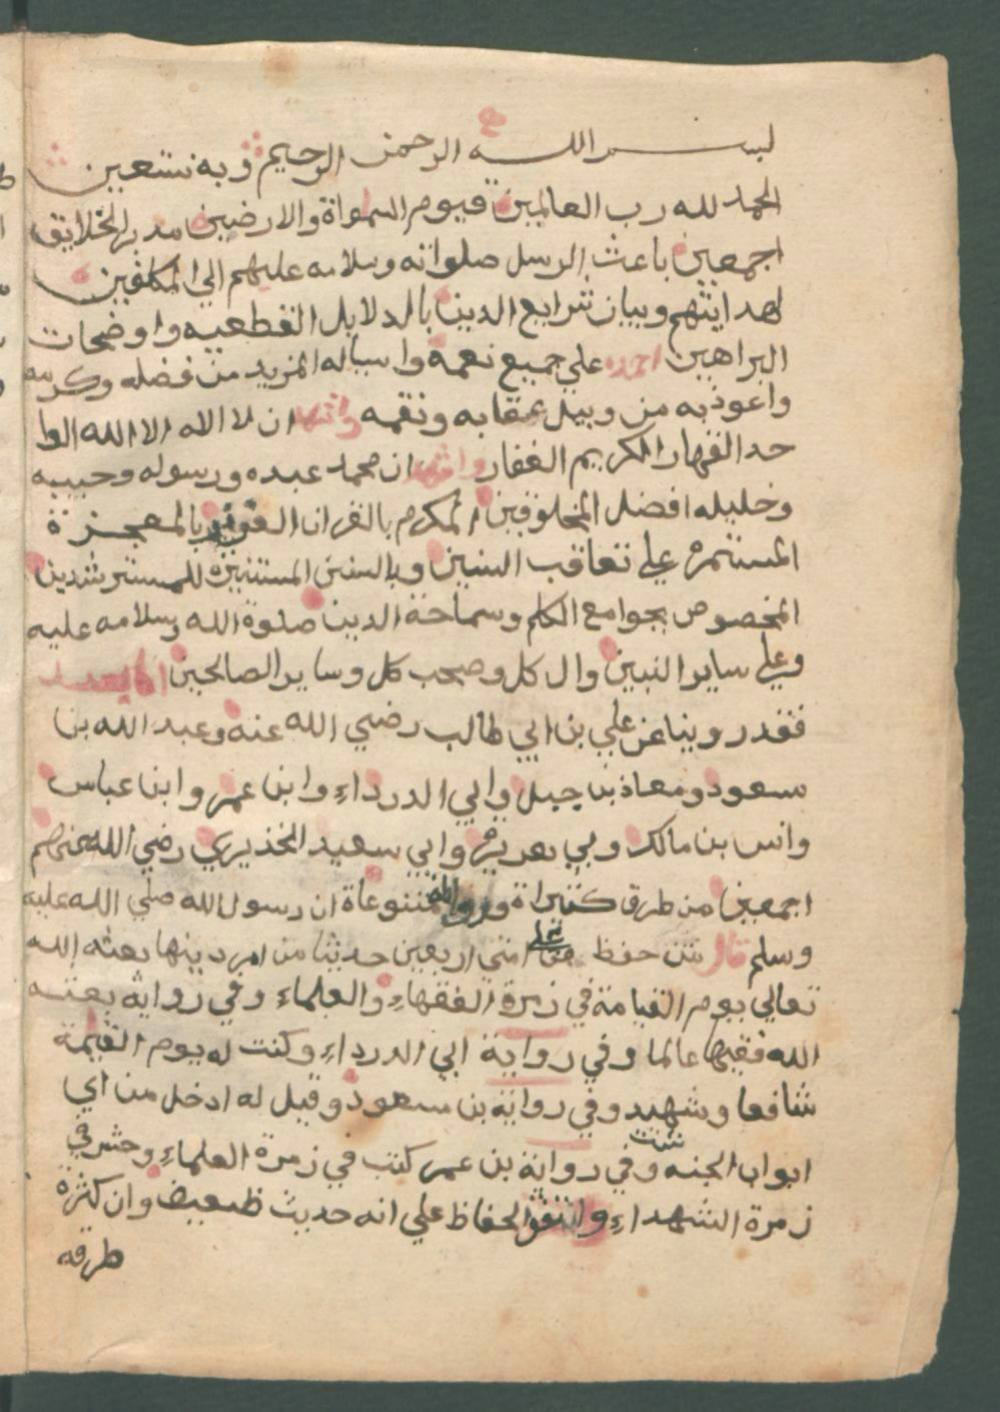 بسم الله الرحمن الرحيم وبه نستعين
الحمد لله رب العالمين قيوم السمواة والارضين مدبر الخلايق
اجمعين باعث الرسل صلواته وسلامه عليهم الي المكلفين
لهدايتهم وبيان شرايع الدين بالدلايل القطعيه واوضحات
البراهين احمده علي جميع نعمه واسياله المزيد من فضله وكرمه
واعوذ به من وبيل عقابه ونقمه واشهد ان لا الاه الا الله الوا
حد القهار الكريم الغفار واشهد ان محمد عبده ورسوله وحبيبه
وخليله افضل المخلوقين المكرم بالقران العزيز بالمعجزة
المستمره علي تعاقب السنين وبالسنن المستنيره للمسترشدين
المخصوص بجوامع الكلم وسماحة الدين صلوة الله وسلامه عليه
وعلي ساير النبين وال كل وصحب كل وساير الصالحين اما بعد
فقد روينا عن علي بن ابي طالب رضي الله عنه وعبد الله بن
مسعود ومعاذ بن جبل وابي الدرداء وابن عمر وابن عباس
وانس بن مالك وبي هريره وابي سعيد الخذيري رضي الله عنهم
اجمعين من طرق كثيراة متنوعاة ان رسول الله صلي الله عليه
وسلم قال من حفظ علي امتي اربعين حديثا من امر دينها بعثه الله
تعالي يوم القيامة في زمرة الفقهاء والعلماء وفي رواية بعثه
الله فقيها عالما وفي رواية ابي الدرداء وكنت له يوم القيمة
شافعا وشهيد وفي رواية بن مسعود وقيل له ادخل من اي
ابواب الجنه شئت وفي رواية بن عمر كتب في زمرة العلماء وحشر في
زمرة الشهداء واتفق الحفاظ علي انه حديث ظعيف وان كثرة
طرقه